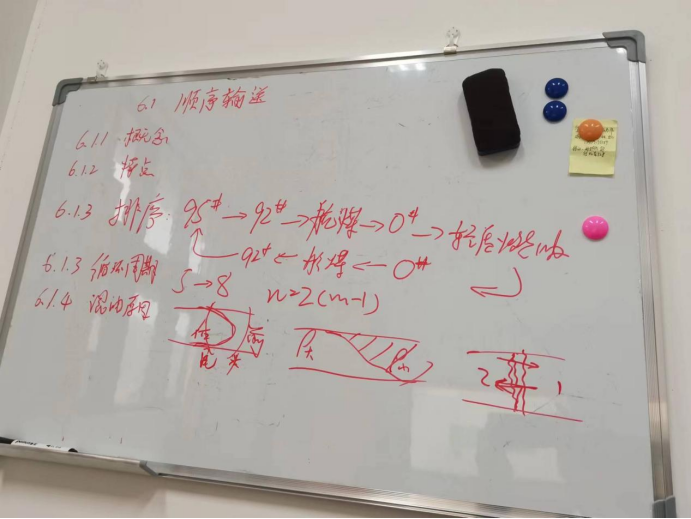 6.1 顺序输送
6.1.1 概念
6.1.2 特点
6.1.3 排序: 95# → 92# → 航煤 → 0# →
92# ← 航煤 ← 0#
6.1.3 循环周期 5 → 8 n=2(m-1)
6.1.4 混油原因
后 前
尾 头
ρ大 ρ小
2 1